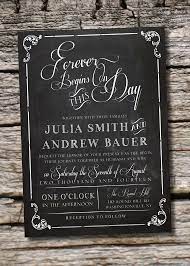 Forever
Begins On
THIS Day
TOGETHER WITH THEIR FAMILIES
JULIA SMITH AND
ANDREW BAUER
REQUEST THE HONOR OF YOUR PRESENCE AS THEY BEGIN
THEIR JOURNEY TOGETHER AS HUSBAND AND WIFE
on Saturday the Seventh of August
TWO THOUSAND AND FOURTEEN
ONE O'CLOCK
IN THE AFTERNOON
RECEPTION TO FOLLOW